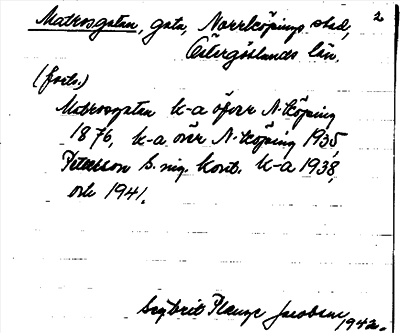 2
Matrosgatan, gata, Norrköpings stad,
Östergötlands län.
(forts.)
Matrosgatan k-a öfver N.köping
1876, k-a över N.köping 1935,
Petersson kont. k-a 1938,
och 1941.
Plenge Jacobsen
1942.